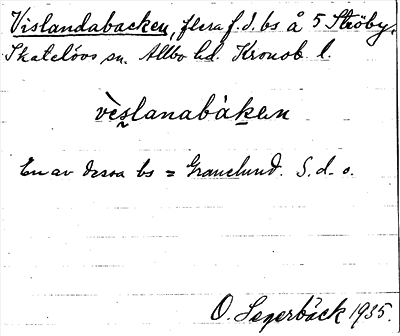 Vislandabacken, flera f.d. bs å 5 Ströby,
Skatelövs sn. Allbo hd. Kronob. l.
vèslanabàken
En av dessa bs = Granelund. S.d. o.
O. Segerbäck 1935.